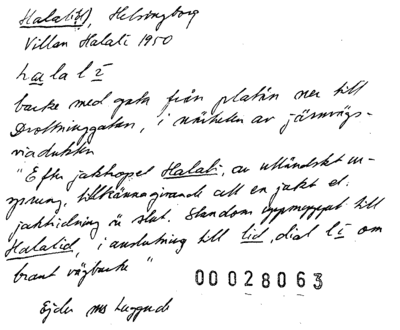 Halalid), Helsingborg
Villan Halali 1950
h a l a l ī
backe med gata från platån ner till
Drottninggatan, i närheten av järnvägs-
viadukten
"Efter jaktropet Halali, av utländskt ur-
sprung, tillkännagivande att en jakt el.
jaktridning är slut. Stundom uppmjukat till
Halalid, i anslutning till lid, dial. lī om
brant vägbacke"
00028063
Ejder ms Luggude